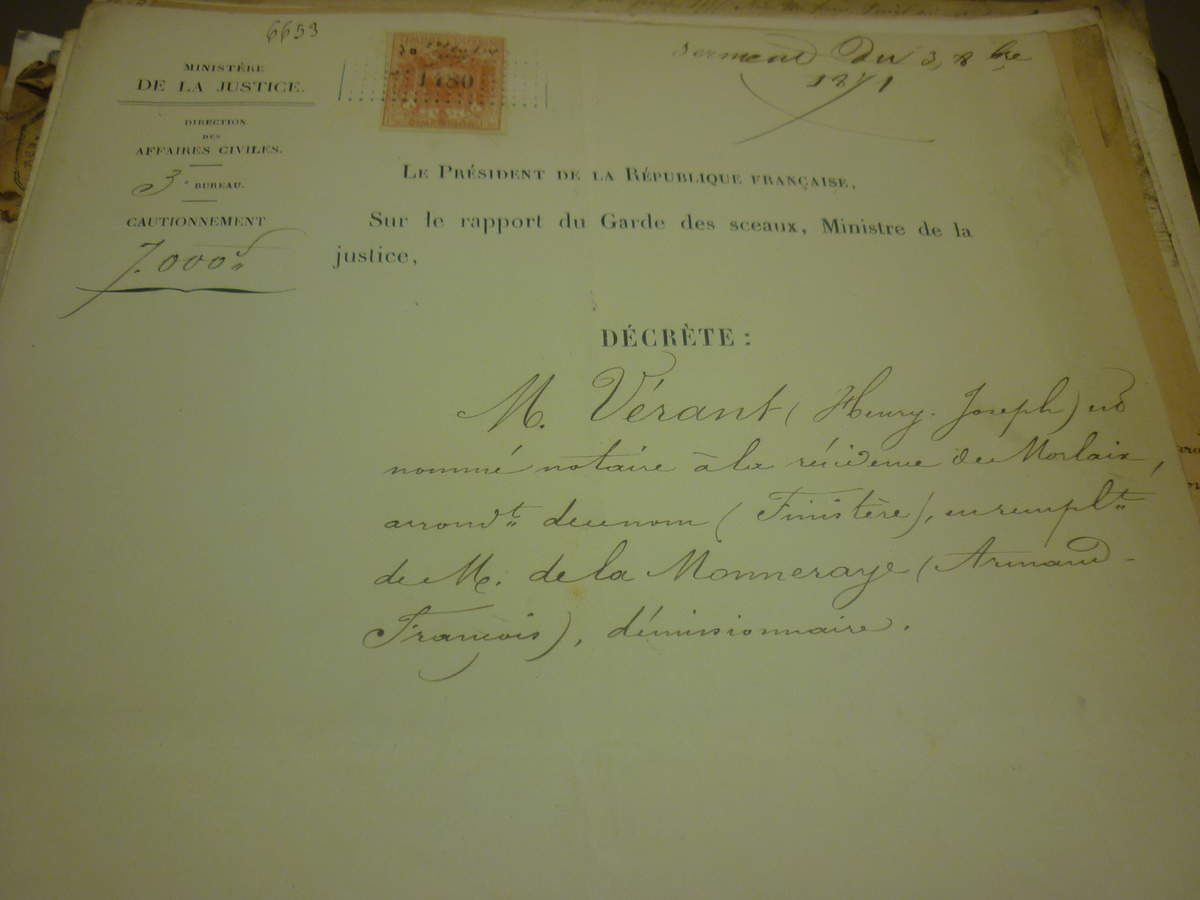 6653
MINISTÈRE
DE LA JUSTICE.
DIRECTION
DES
AFFAIRES CIVILES.
3e BUREAU.
CAUTIONNEMENT
7.000f
1480
serment Du 3, 8bre
1871
LE PRÉSIDENT DE LA RÉPUBLIQUE FRANÇAISE,
Sur le rapport du Garde des sceaux, Ministre de la
justice,
DÉCRÈTE :
M. Vérant (Henry-Joseph) est
nommé notaire à la résidence de Morlaix,
arrondt de ce nom (Finistère), en remplt
de M. de la Monneraye (Armand-
François), démissionnaire.